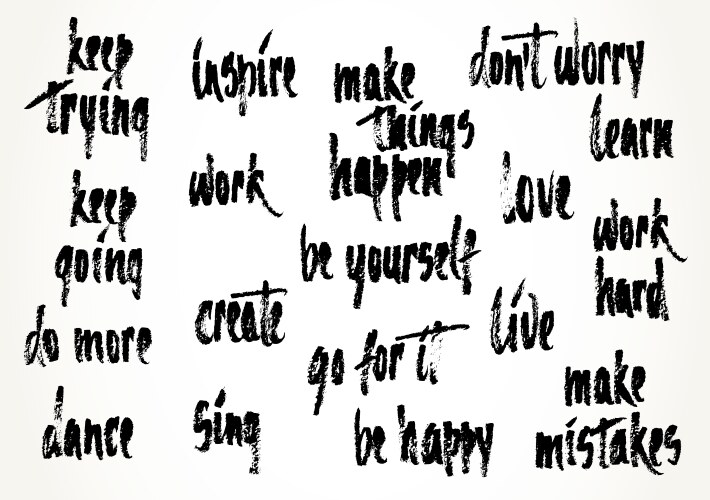 keep
trying
keep
going
do more
dance
inspire
work
create
sing
make
things
happen
be yourself
go for it
be happy
don't worry
learn
love
work
hard
live
make
mistakes